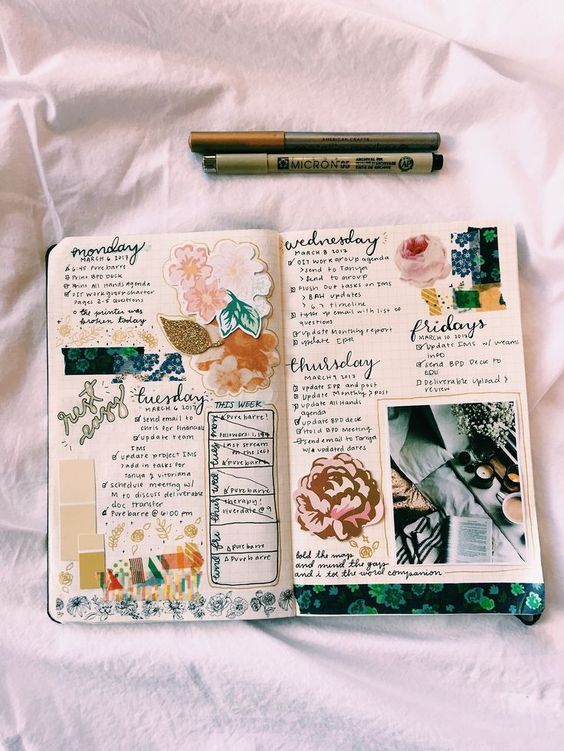 AMERICAN CRAFTS
MICRON 05
ARCHIVAL INK
AP
monday
MARCH 6 2017
6:45 Pure barre
Print BPD DECK
Print All Hands agenda
OIT workgroup charter
Pages 2-5 questions
the printer was
broken today
rest
easy
tuesday
MARCH 6, 2017
send email to
chris for financials
update team
IMS
update project IMS
>add in tasks for
Tanya & Vitoriana
schedule meeting w/
M to discuss deliverable
doc transfer
Pure barre @ 6:00 pm
THIS WEEK
mon
Pure barre!
Followers: 1,
Last stream
on the
tues
Pure barre
wed
Pure barre
thurs
therapy!
riverdale @ 9
fri
Pure barre
wknd
Pure barre
wednesday
MARCH 8 2017
OIT workgroup agenda
>Send to Tanya
>Send to group
Flush out tasks on IMS
> BAH updates
> 6.7 timeline
type up email with list of
questions
update Monthly report
update IPR
thursday
MARCH 9, 2017
update IPR and post
update Monthly > post
update All Hands
agenda
update BPD deck
Hold BPD Meeting
send email to Tanya
w/ updated dates
fridays
MARCH 10 2017
update IMS w/ weams
info
send BPD Deck to
EDU
Deliverable upload >
review
hold the map
and mind the gaps
and i for the word companion